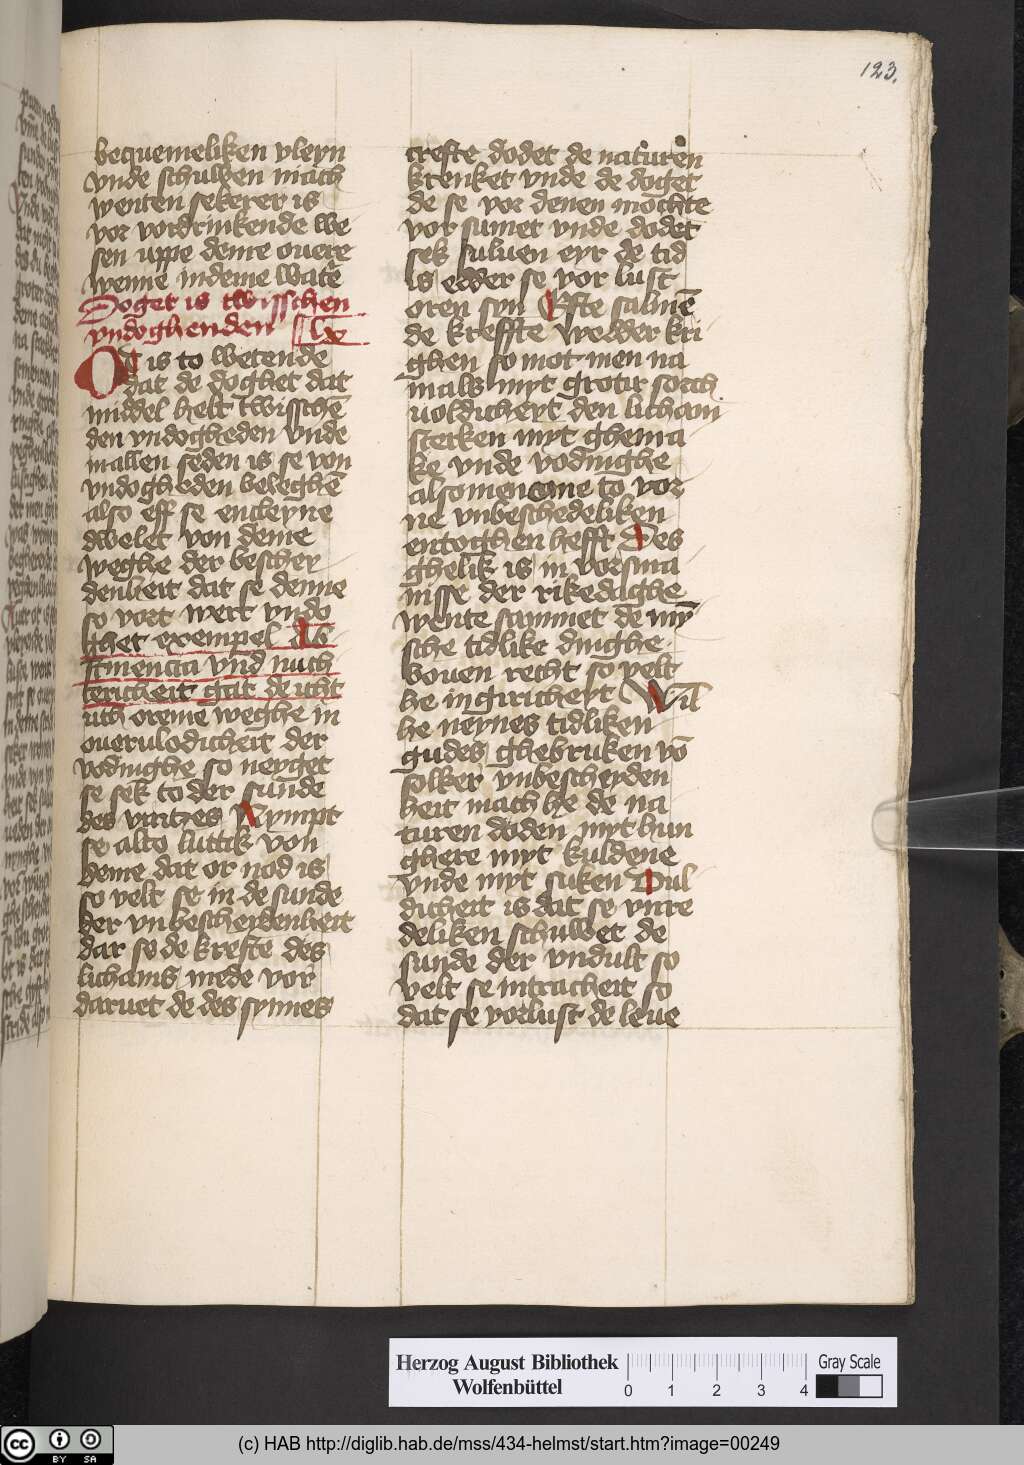 123.
bequemeliken vleyn
vnde schuwen mach
wenten sekerer is
vor vordrinkende we
sen uppe deme ouere
wenne indeme watē
Doget is twisschen
vndoghenden lx
Ot is to wetende
dat de doghet dat
middel helt twisschē
den vndogheden vnde
mallen seden is se von
vndogheden beleghē
also eff se encleyne
dwelet von deme
weghe der beschey
denheit dat se denne
so vort wert vndo
ghet exempel Ab
stinencia vnd nuch
tericheit gat de vcht
uth oreme weghe in
ouerulodicheit der
vodinghe so neyget
se sek to der sunde
des vratzes Nympt
se alto luttik von
deme dat or nod is
so velt se in de sunde
der vnbescheydenheit
dar se de krefte des
lichams mede vor
daruet de des synnes
crefte dodet de naturen
krenket vnde de doget
de se vor denen mochte
vor sumet vnde dodet
sek suluen eyr de tid
is edder se vor lust
oren syn Efte salmē
de kreffte wedder kri
ghen so mot men na
mals myt groter sorch
uoldicheyt den licham
sterken myt ghema
ke vnde vodinghe
alsomen ome to vor
ne vnbeschedeliken
entoghen hefft Des
ghelik is in vorsma
nisse der rikedaghe
wente sammet de mȳ
sche tidlike dinghe
bouen recht so velt
he in giricheyt Wil
he neynes tidliken
gudes ghebruken vō
solker vnbescheyden
heit mach he de na
turen doden myt hun
ghere myt kuldene
vnde myt suken Dul
dicheit is dat se vnre
deliken schuwet de
sunde der vndult so
velt se in tracheit so
dat se vorlust de leue
Herzog August Bibliothek
Wolfenbüttel
0 1 2 3 4
Gray Scale
cc BY SA
(c) HAB http://diglib.hab.de/mss/434-helmst/start.htm?image=00249